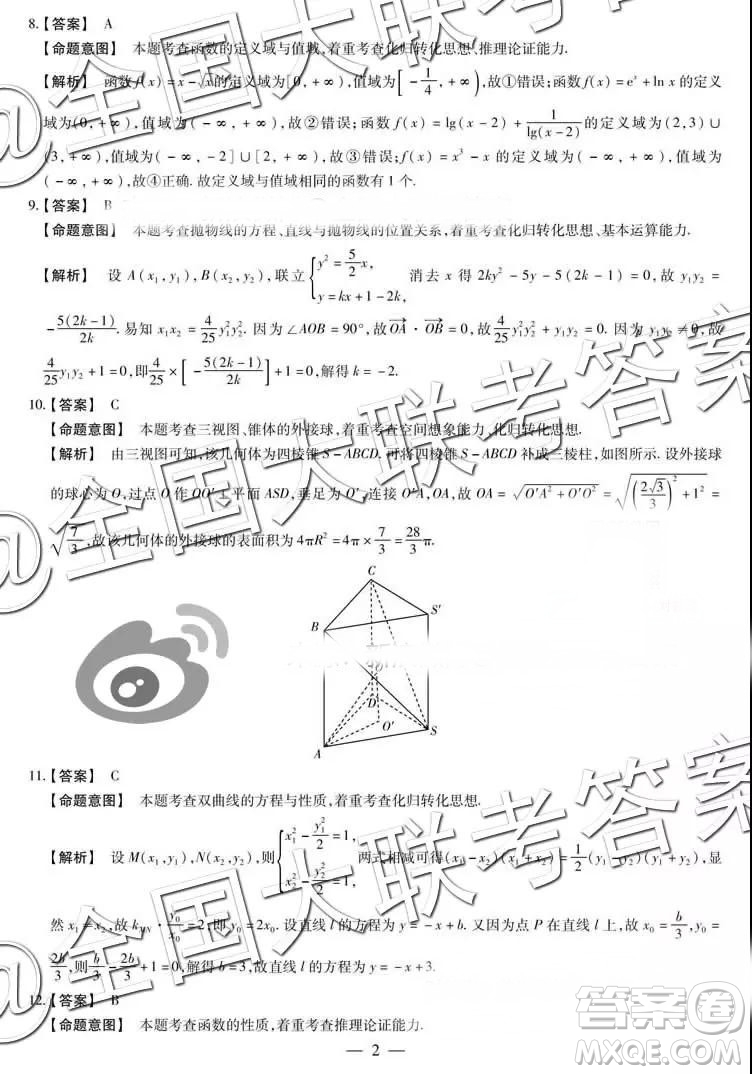 8.【答案】 A
【命题意图】 本题考查函数的定义域与值域,着重考查化归转化思想、推理论证能力.
【解析】 函数 f(x) = x - √x的定义域为[0, +∞),值域为[-1/4, +∞),故①错误;函数 f(x) = e^x + ln x 的定义
域为(0, +∞),值域为(-∞, +∞),故②错误;函数 f(x) = lg(x-2) + 1/lg(x-2) 的定义域为(2,3)∪
(3, +∞),值域为(-∞, -2]∪[2, +∞),故③错误;函数 f(x) = x³ - x 的定义域为(-∞, +∞),值域
为(-∞, +∞),故④正确. 故定义域与值域相同的函数有 1 个.
9.【答案】 B
【命题意图】 本题考查抛物线的方程、直线与抛物线的位置关系,着重考查化归转化思想、基本运算能力.
【解析】 设 A(x₁,y₁),B(x₂,y₂),联立{y² = 5/2 x, y = kx + 1 - 2k, 消去 x 得 2ky² - 5y - 5(2k-1) = 0,故 y₁y₂ =
-5(2k-1)/2k. 易知 x₁x₂ = 4/25 y₁²y₂². 因为∠AOB = 90°,故OA→ · OB→ = 0,故 4/25 y₁²y₂² + y₁y₂ = 0. 因为 y₁y₂ ≠ 0,故
4/25 y₁y₂ + 1 = 0,即 4/25 × [-5(2k-1)/2k] + 1 = 0,解得 k = -2.
10.【答案】 C
【命题意图】 本题考查三视图、锥体的外接球,着重考查空间想象能力、化归转化思想.
【解析】 由三视图可知,该几何体为四棱锥 S-ABCD. 可将四棱锥 S-ABCD 补成三棱柱,如图所示. 设外接球
的球心为 O,过点 O 作 OO'⊥平面 ASD,垂足为 O',连接 O'A,OA,故 OA = √(O'A² + O'O²) = √((2√3/3)² + 1²) =
√(7/3),故该几何体的外接球的表面积为 4πR² = 4π × 7/3 = 28/3 π.
C
S'
B
O
D
O'
S
A
11.【答案】 C
【命题意图】 本题考查双曲线的方程与性质,着重考查化归转化思想.
【解析】 设 M(x₁,y₁),N(x₂,y₂),则{x₁² - y₁²/2 = 1, x₂² - y₂²/2 = 1, 两式相减可得(x₁-x₂)(x₁+x₂) = 1/2(y₁-y₂)(y₁+y₂),显
然 x₁ ≠ x₂,故 k_MN · y₀/x₀ = 2,即 y₀ = 2x₀. 设直线 l 的方程为 y = -x + b. 又因为点 P 在直线 l 上,故 x₀ = b/3,y₀ =
2b/3,则 b/3 - 2b/3 + 1 = 0,解得 b = 3,故直线 l 的方程为 y = -x + 3.
12.【答案】 B
【命题意图】 本题考查函数的性质,着重考查推理论证能力.
— 2 —
@全国大联考答案
@全国大联考答案
@全国大联考答案
答案卷
MXQE.COM